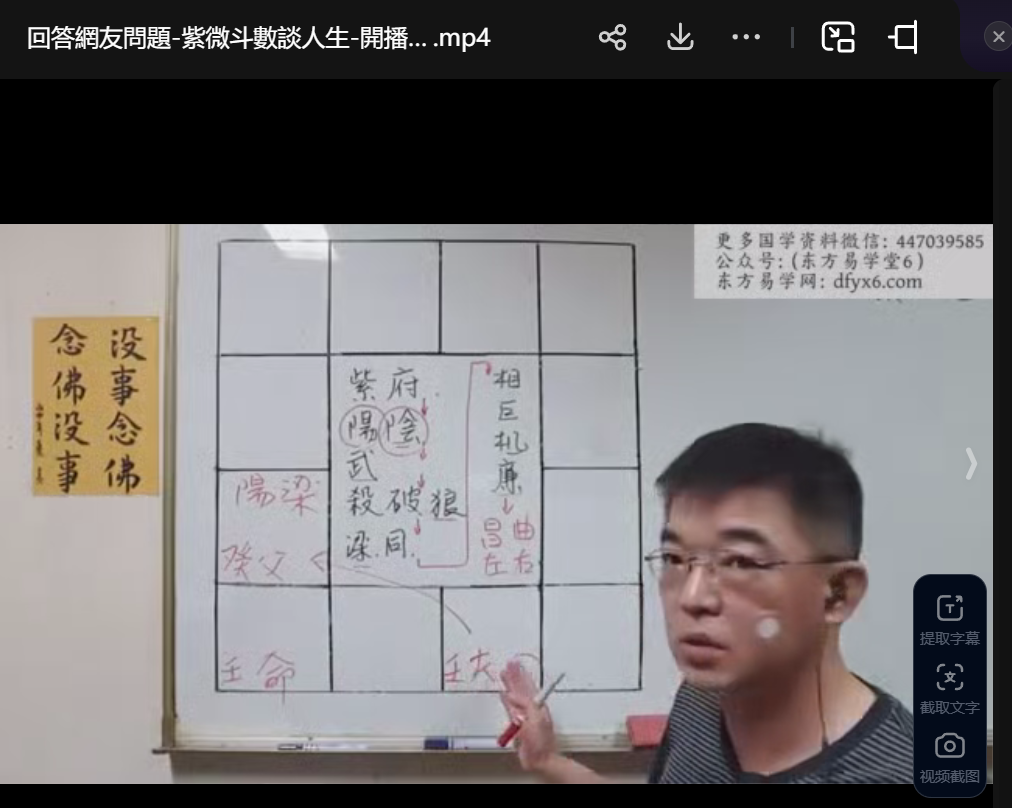 回答網友問題-紫微斗數談人生-開播... .mp4
更多国学资料微信: 447039585
公众号:(东方易学堂6)
东方易学网: dfyx6.com
没事念佛
念佛没事
紫府
陽陰
武
殺破狼
梁.同.
相
巨
机
廉
昌曲
左右
陽梁
癸父
壬命
壬夫
提取字幕
截取文字
视频截图